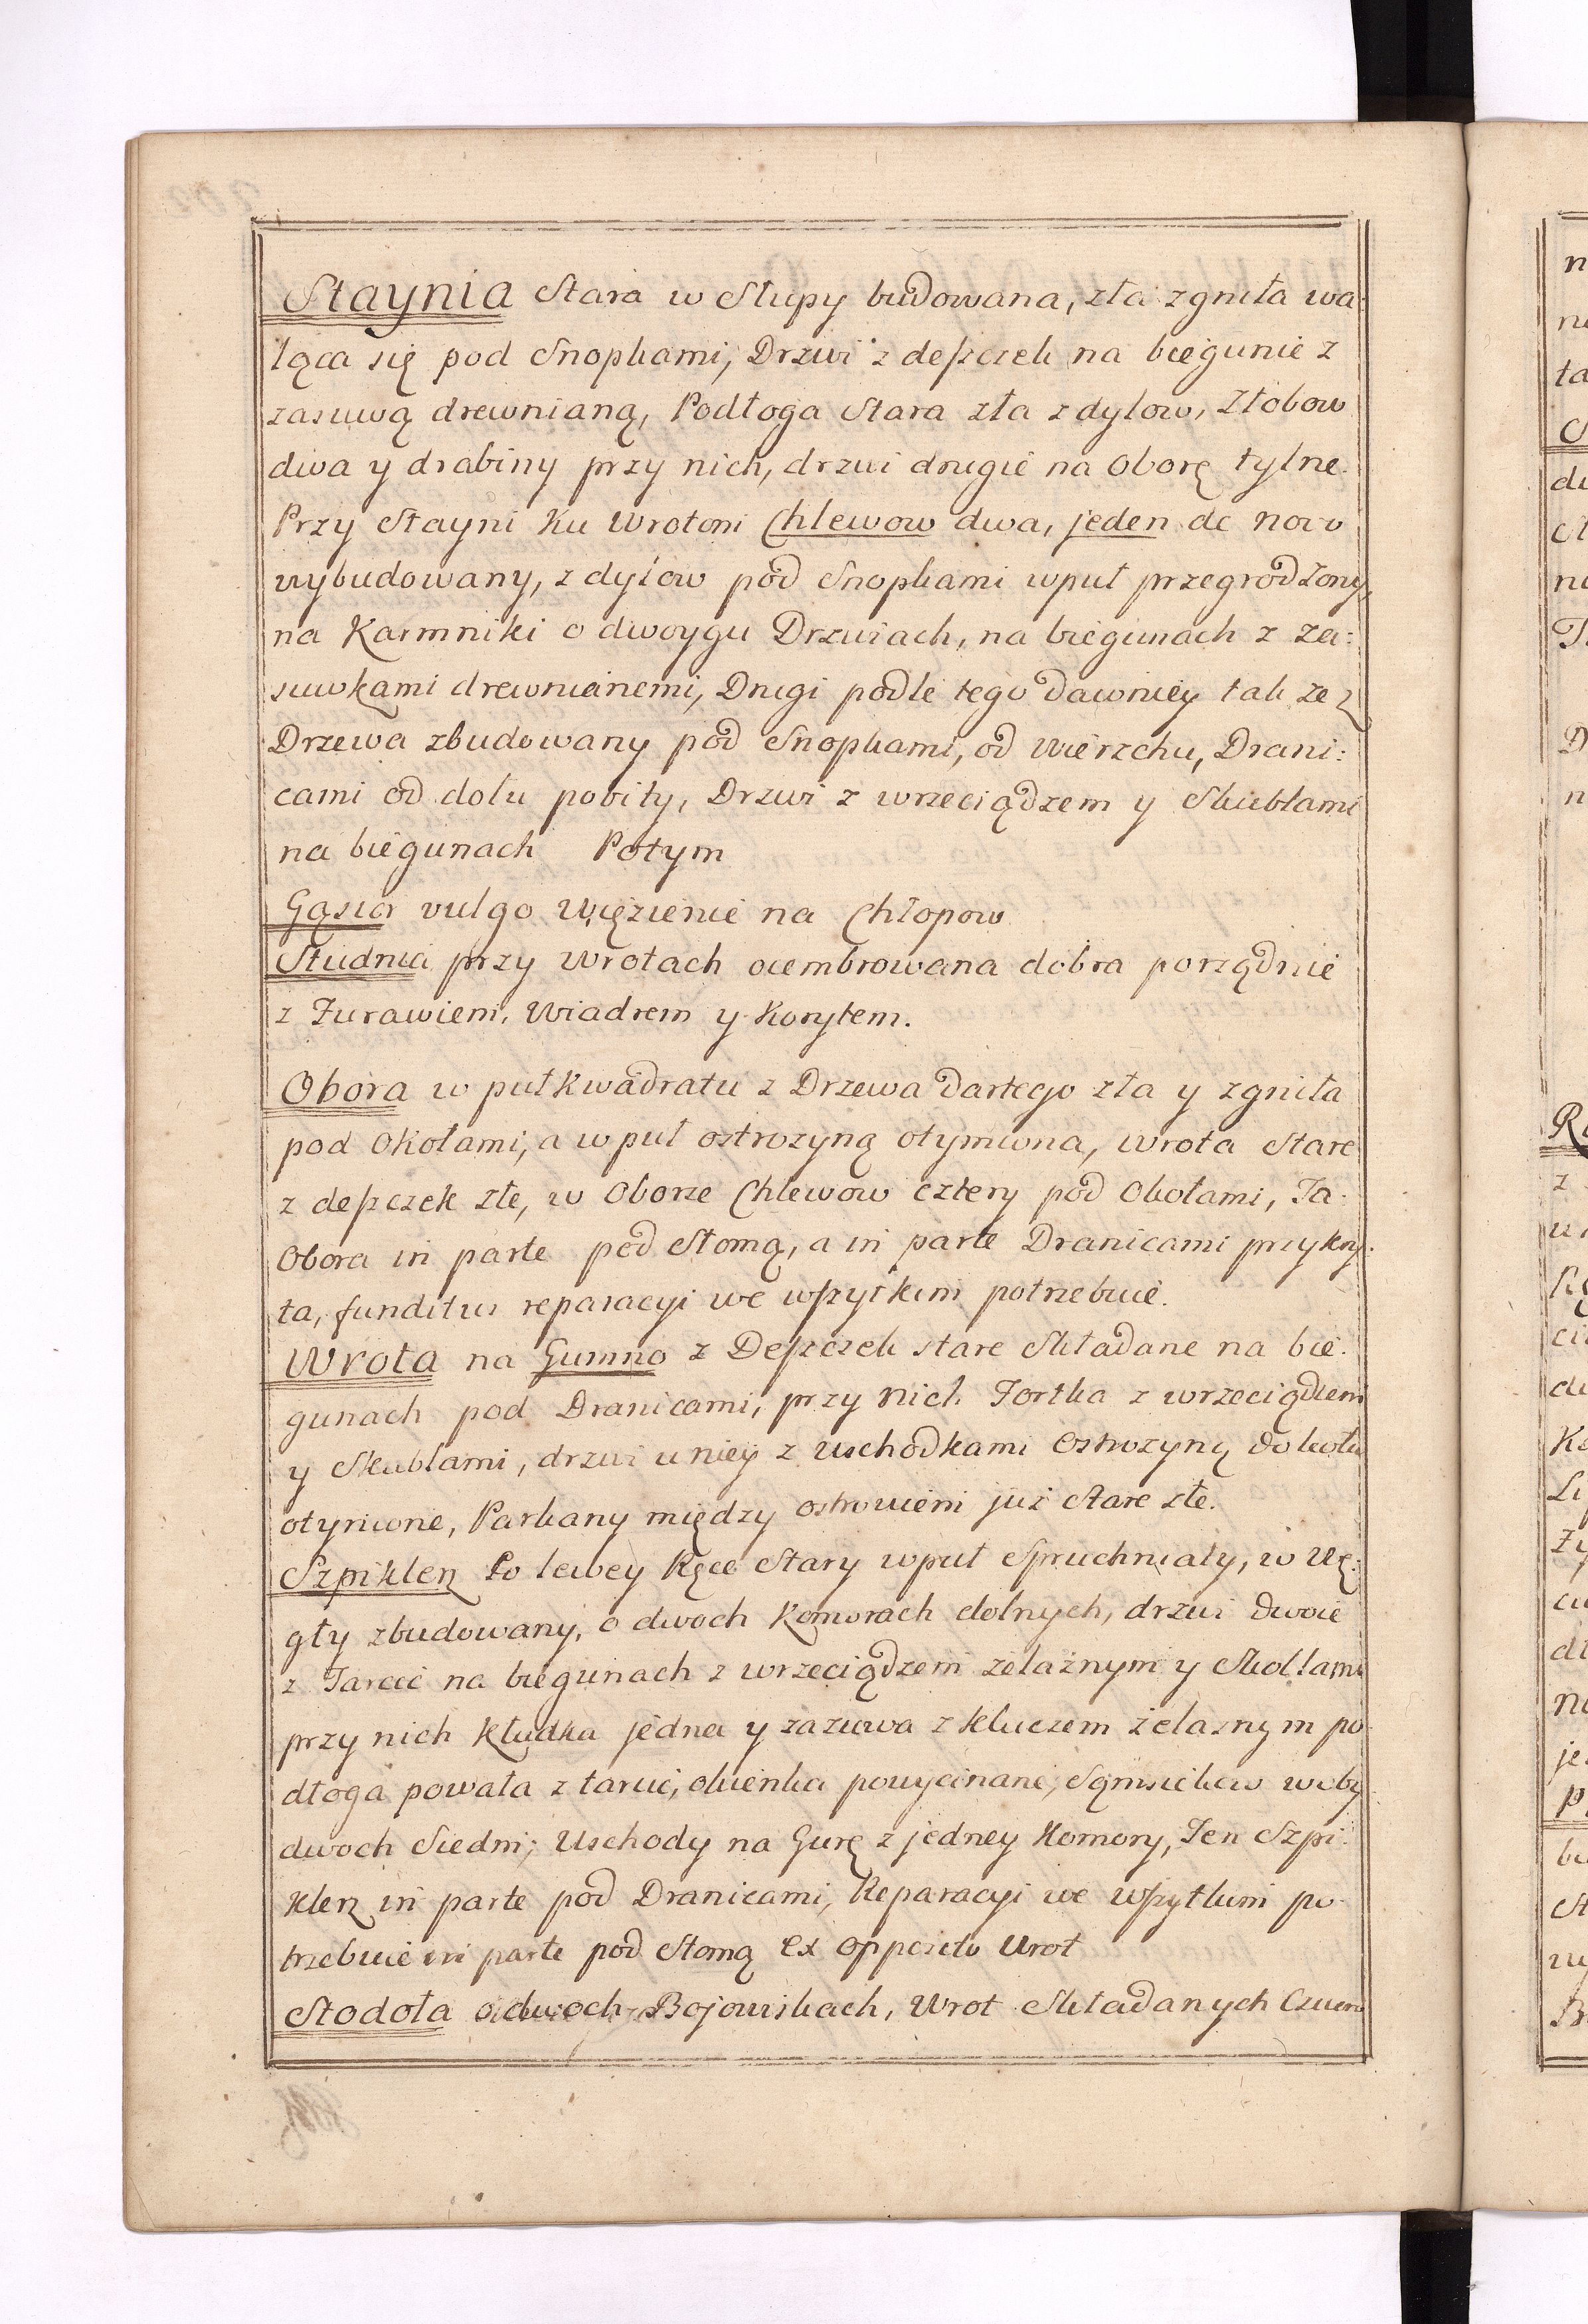 Staynia stara w Słupy budowana, zła zgniła wa:
ląca się pod Snopkami, Drzwi z deszczek na biegunie z
zasuwą drewnianą, Podłoga Stara zła z dylow, Złobow
dwa y drabiny przy nich, drzwi drugie na Oborę tylne.
Przy Stayni Ku Wrotom Chlewow dwa, jeden de novo
wybudowany, z dylow pod Snopkami wpuł przegrodzony,
na Karmniki o dwoygu Drzwiach, na biegunach z za:
suwkami drewnianemi, Drugi podle tego dawniey tak ze z
Drzewa zbudowany pod Snopkami, od wierzchu, Drani:
cami od dołu pobity, Drzwi z wrzeciądzem y Skublami
na biegunach Potym
Gąsia vulgo Więzienie na Chłopow
Studnia przy Wrotach ocembrowana dobra porządnie
z Zurawiem, Wiadrem y Korytem.
Obora w puł Kwadratu z Drzewa dartego zła y zgniła
pod Okołami, a w puł ostrozyną otyniona, Wrota Stare
z deszczek złe, w Oborze Chlewow cztery pod Okołami, Ta
Obora in parte pod Słomą, a in parte Dranicami przykry:
ta, funditus reparacyi we wszytkim potrzebuie.
Wrota na Gumno z Deszczek stare Składane na bie:
gunach pod Dranicami, przy nich Fortka z wrzeciądzem
y Skublami, drzwi u niey z uschodkami Ostrozyną dokoła
otynione, Parkany między ostrowiem już Stare złe.
Szpiklerz Po lewey Ręce Stary wpuł Spruchniały, w Wę:
gły zbudowany, o dwoch Komorach dolnych, drzwi dwoie
z Tarcic na biegunach z wrzeciądzem żelaznym y Skoblami
przy nich Kłudka jedna y zazuwa z kluczem żelaznym po
dłoga powała z tarcic, okienka powycinane, Sąmsiekow w oby
dwoch Siedm; Uschody na Gurę z jedney Komory, Ten Szpi:
klerz in parte pod Dranicami, Reparacyi we Wszytkim po
trzebuie in parte pod Słomą Ex opposito Wrot
Stodoła o dwoch Bojowiskach, Wrot Składanych Czworo